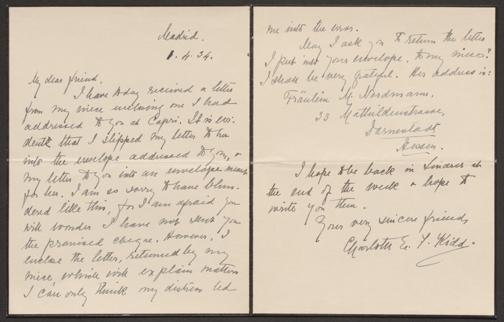 Madrid.
8.4.34.
My dear friend,
I have today received a letter
from my niece enclosing one I had
addressed to you at Capri. It is evi-
dent that I slipped my letter to her
into the envelope addressed to you, &
my letter to you into an envelope meant
for her. I am so sorry to have blun-
dered like this, for I am afraid you
will wonder I have not sent you
the promised cheque. However, I
enclose the letter, returned by my
niece which will explain matters
I can only think my distress led
me into the error.
May I ask you to return the letter
I put into your envelope, to my niece?
I shall be very grateful. Her address is:
Fräulein M. Nordmann,
33 Mathildenstrasse,
Darmstadt
Hessen.
I hope to be back in London at
the end of the week & hope to
write you then.
Your very sincere friend,
Charlotte E. Y. Kidd.